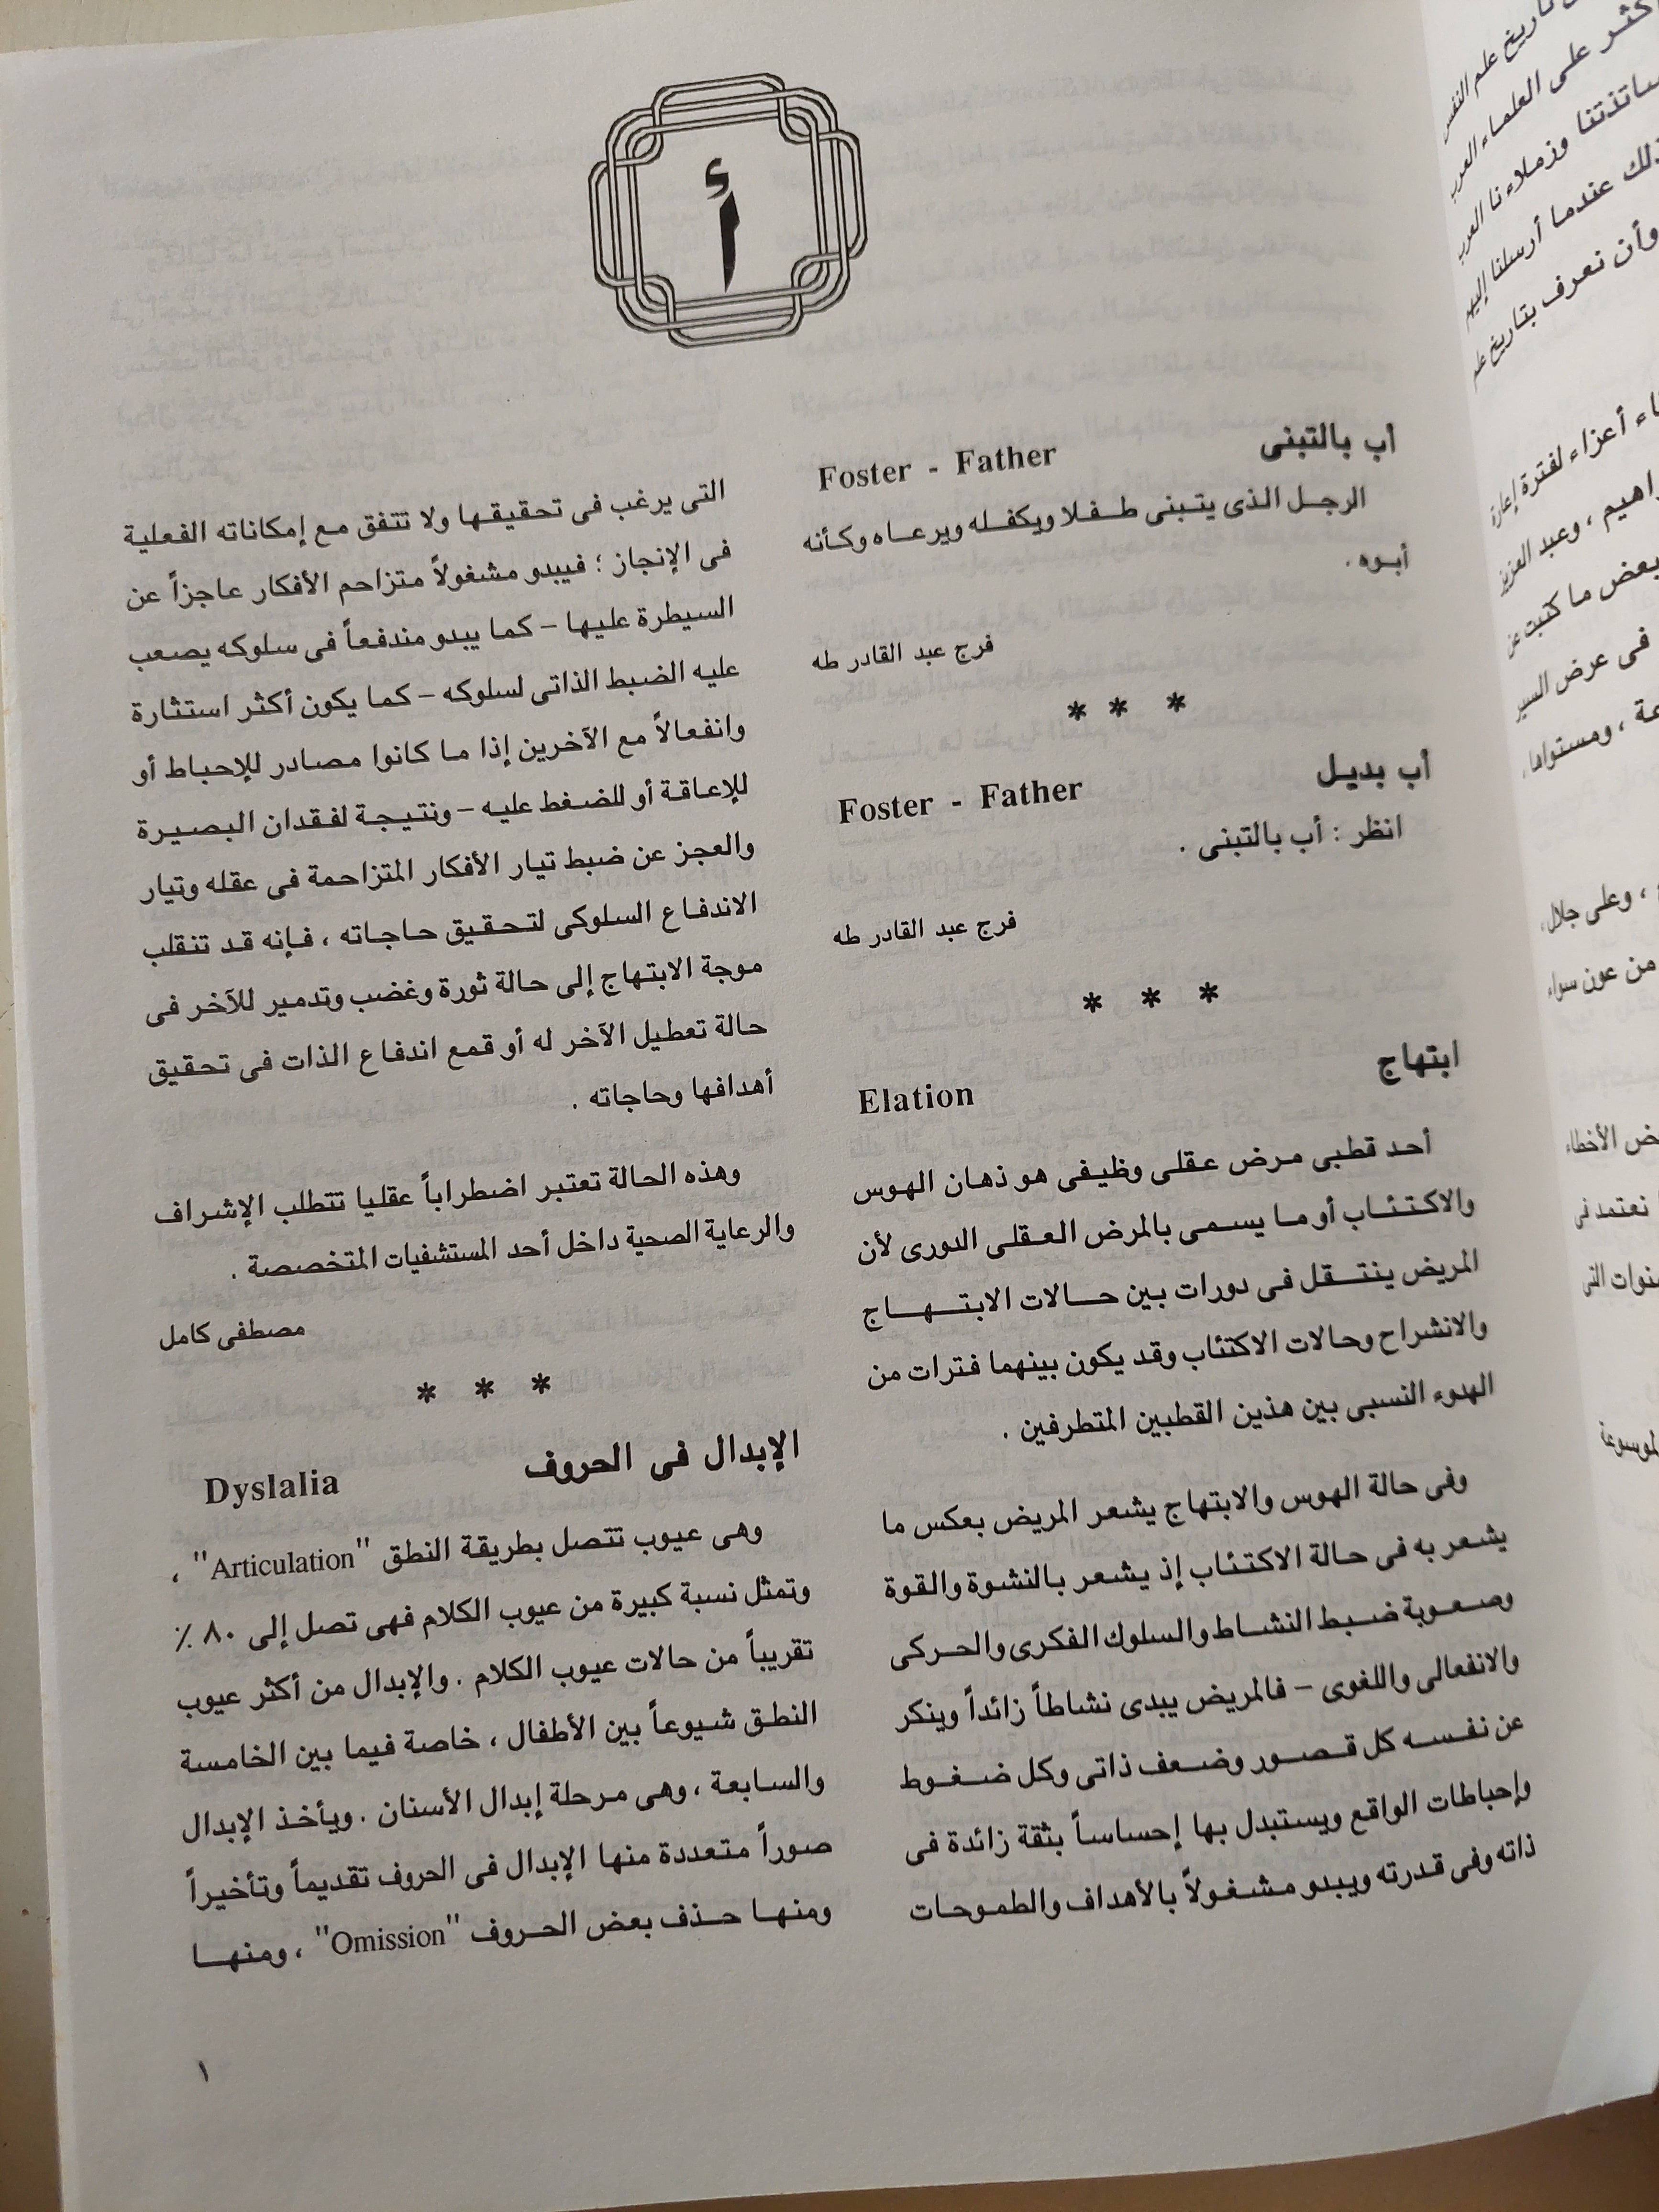 أ
أب بالتبنى Foster - Father
الرجل الذى يتبنى طفلا ويكفله ويرعاه وكأنه
أبوه .
فرج عبد القادر طه
* * *
أب بديل Foster - Father
انظر : أب بالتبنى .
فرج عبد القادر طه
* * *
ابتهاج Elation
أحد قطبى مرض عقلى وظيفى هو ذهان الهوس
والاكتئاب أو ما يسمى بالمرض العقلى الدورى لأن
المريض ينتقل فى دورات بين حالات الابتهاج
والانشراح وحالات الاكتئاب وقد يكون بينهما فترات من
الهدوء النسبى بين هذين القطبين المتطرفين .
وفى حالة الهوس والابتهاج يشعر المريض بعكس ما
يشعر به فى حالة الاكتئاب إذ يشعر بالنشوة والقوة
وصعوبة ضبط النشاط والسلوك الفكرى والحركى
والانفعالى واللغوى – فالمريض يبدى نشاطاً زائداً وينكر
عن نفسه كل قصور وضعف ذاتى وكل ضغوط
وإحباطات الواقع ويستبدل بها إحساساً بثقة زائدة فى
ذاته وفى قدرته ويبدو مشغولاً بالأهداف والطموحات
التى يرغب فى تحقيقها ولا تتفق مع إمكاناته الفعلية
فى الإنجاز ؛ فيبدو مشغولاً متزاحم الأفكار عاجزاً عن
السيطرة عليها – كما يبدو مندفعاً فى سلوكه يصعب
عليه الضبط الذاتى لسلوكه – كما يكون أكثر استثارة
وانفعالاً مع الآخرين إذا ما كانوا مصادر للإحباط أو
للإعاقة أو للضغط عليه – ونتيجة لفقدان البصيرة
والعجز عن ضبط تيار الأفكار المتزاحمة فى عقله وتيار
الاندفاع السلوكى لتحقيق حاجاته ، فإنه قد تنقلب
موجة الابتهاج إلى حالة ثورة وغضب وتدمير للآخر فى
حالة تعطيل الآخر له أو قمع اندفاع الذات فى تحقيق
أهدافها وحاجاته .
وهذه الحالة تعتبر اضطراباً عقليا تتطلب الإشراف
والرعاية الصحية داخل أحد المستشفيات المتخصصة .
مصطفى كامل
* * *
الإبدال فى الحروف Dyslalia
وهى عيوب تتصل بطريقة النطق "Articulation" ،
وتمثل نسبة كبيرة من عيوب الكلام فهى تصل إلى ٨٠ ٪
تقريباً من حالات عيوب الكلام . والإبدال من أكثر عيوب
النطق شيوعاً بين الأطفال ، خاصة فيما بين الخامسة
والسابعة ، وهى مرحلة إبدال الأسنان . ويأخذ الإبدال
صوراً متعددة منها الإبدال فى الحروف تقديماً وتأخيراً
ومنها حذف بعض الحروف "Omission" ، ومنها
١
تاريخ علم النفس
على العلماء العرب
وزملاءنا العرب
عندما أرسلنا إليهم
وأن نعرف بتاريخ
أعزاء لفترة إعارة
، وعبد العزيز
بعض ما كتبت عن
فى عرض السير
، ومستواها
، وعلى جلال
من عون سواء
الأخطاء
نعتمد فى
التى